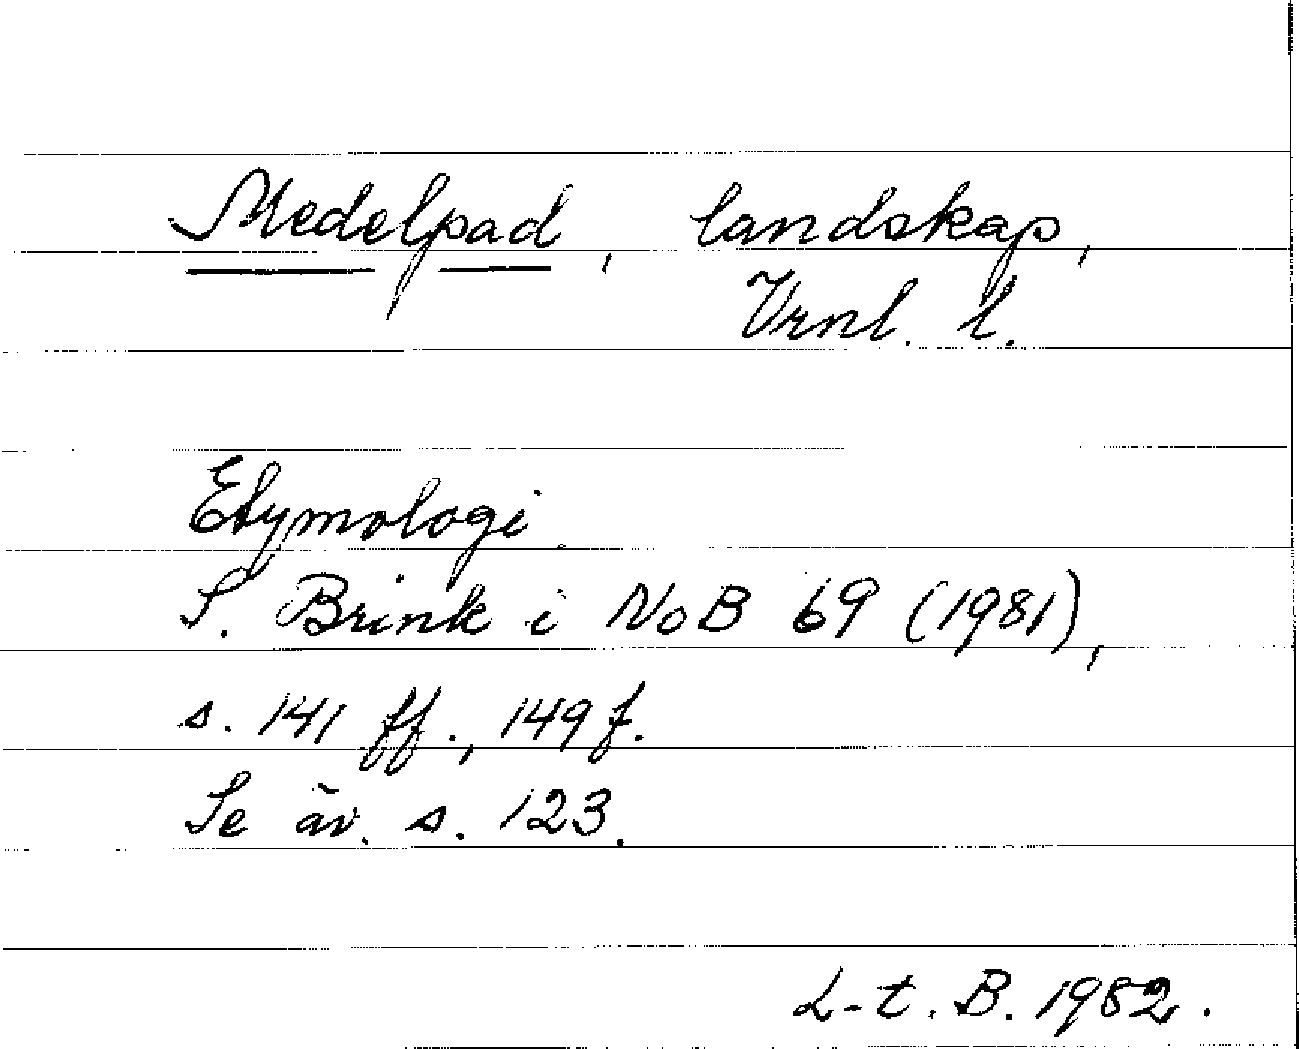 Medelpad, landskap,
Vrnl. l.
Etymologi.
S. Brink i NoB 69 (1981),
s. 141 ff., 149 f.
Se äv. s. 123.
L-t. B. 1982.